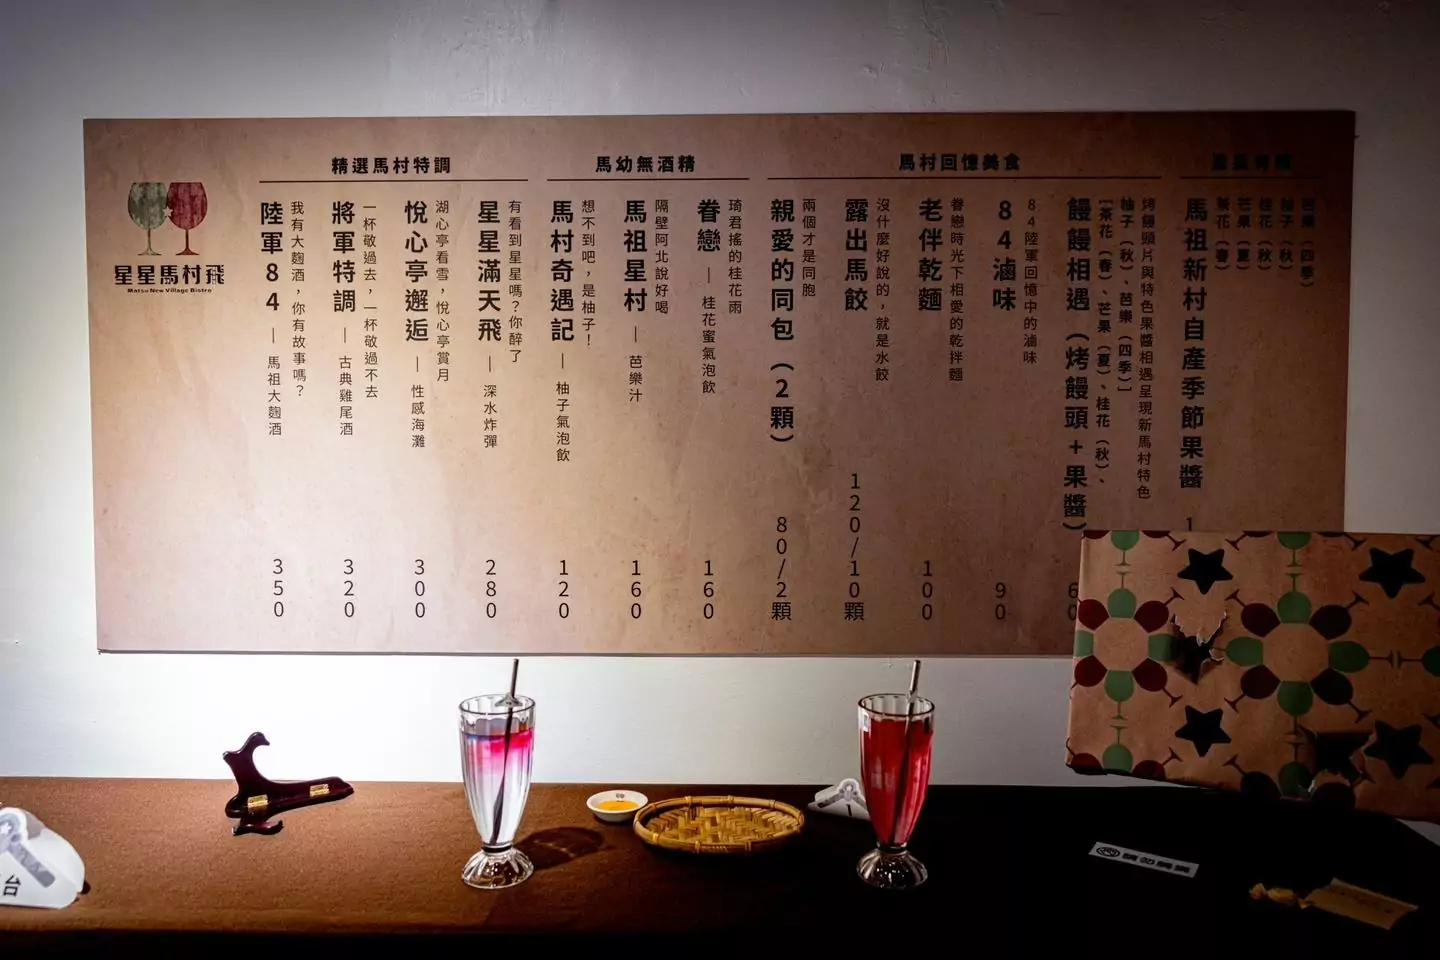 星星馬村飛
Matsu New Village Bistro
精選馬村特調
陸軍84 — 馬祖大麴酒
我有大麴酒，你有故事嗎？
350
將軍特調 — 古典雞尾酒
一杯敬過去，一杯敬過不去
320
悅心亭邂逅 — 性感海灘
湖心亭看雪，悅心亭賞月
300
星星滿天飛 — 深水炸彈
有看到星星嗎？你醉了
280
馬幼無酒精
馬村奇遇記 — 柚子氣泡飲
想不到吧，是柚子！
120
馬祖星村 — 芭樂汁
隔壁阿北說好喝
160
眷戀 — 桂花蜜氣泡飲
琦君搖的桂花雨
160
馬村回憶美食
親愛的同包（2顆）
兩個才是同胞
80/2顆
露出馬餃
沒什麼好說的，就是水餃
120/10顆
老伴乾麵
眷戀時光下相愛的乾拌麵
100
84滷味
84陸軍回憶中的滷味
90
饅饅相遇（烤饅頭+果醬）
[茶花（春）、芒果（夏）、桂花（秋）、
柚子（秋）、芭樂（四季）]
烤饅頭片與特色果醬相遇呈現新馬村特色
60
馬祖新村自產季節果醬
茶花（春）
芒果（夏）
桂花（秋）
柚子（秋）
芭樂（四季）
1
台